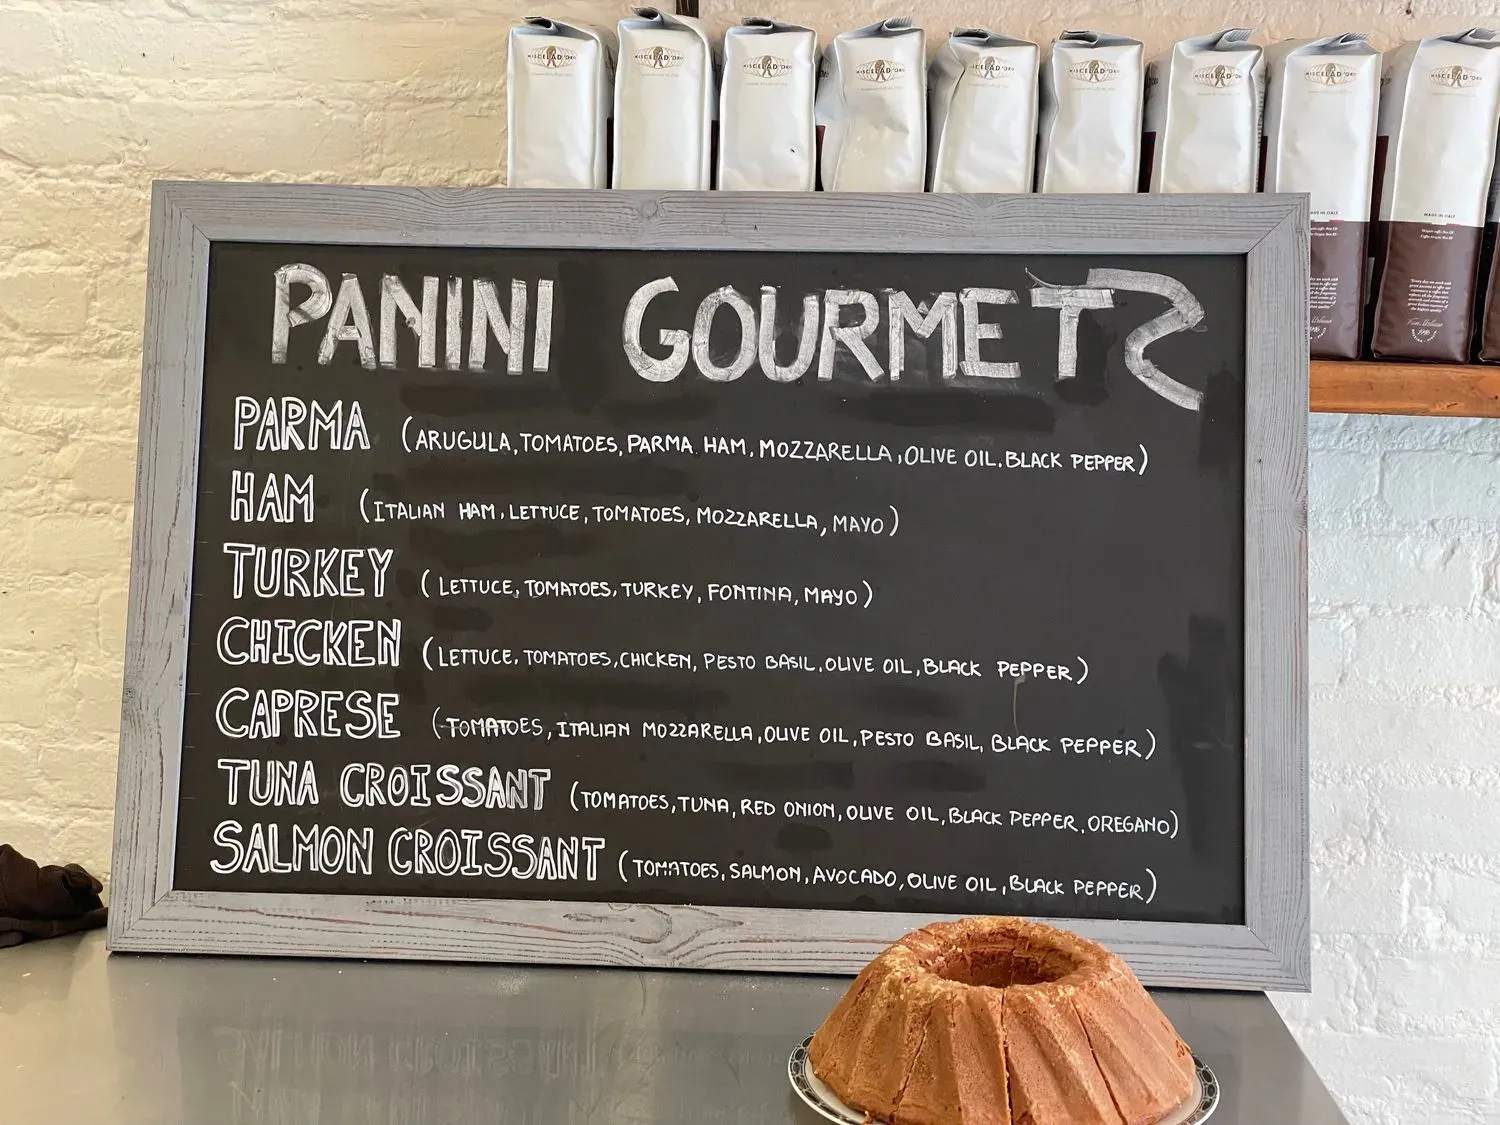 MISCELA D'ORO MISCELA D'ORO MISCELA D'ORO MISCELA D'ORO MISCELA D'ORO MISCELA D'ORO MISCELA D'ORO MISCELA D'ORO MISCELA D'ORO
MADE IN ITALY MADE IN ITALY
PANINI GOURMET
PARMA (ARUGULA, TOMATOES, PARMA HAM, MOZZARELLA, OLIVE OIL, BLACK PEPPER)
HAM (ITALIAN HAM, LETTUCE, TOMATOES, MOZZARELLA, MAYO)
TURKEY (LETTUCE, TOMATOES, TURKEY, FONTINA, MAYO)
CHICKEN (LETTUCE, TOMATOES, CHICKEN, PESTO BASIL, OLIVE OIL, BLACK PEPPER)
CAPRESE (TOMATOES, ITALIAN MOZZARELLA, OLIVE OIL, PESTO BASIL, BLACK PEPPER)
TUNA CROISSANT (TOMATOES, TUNA, RED ONION, OLIVE OIL, BLACK PEPPER, OREGANO)
SALMON CROISSANT (TOMATOES, SALMON, AVOCADO, OLIVE OIL, BLACK PEPPER)